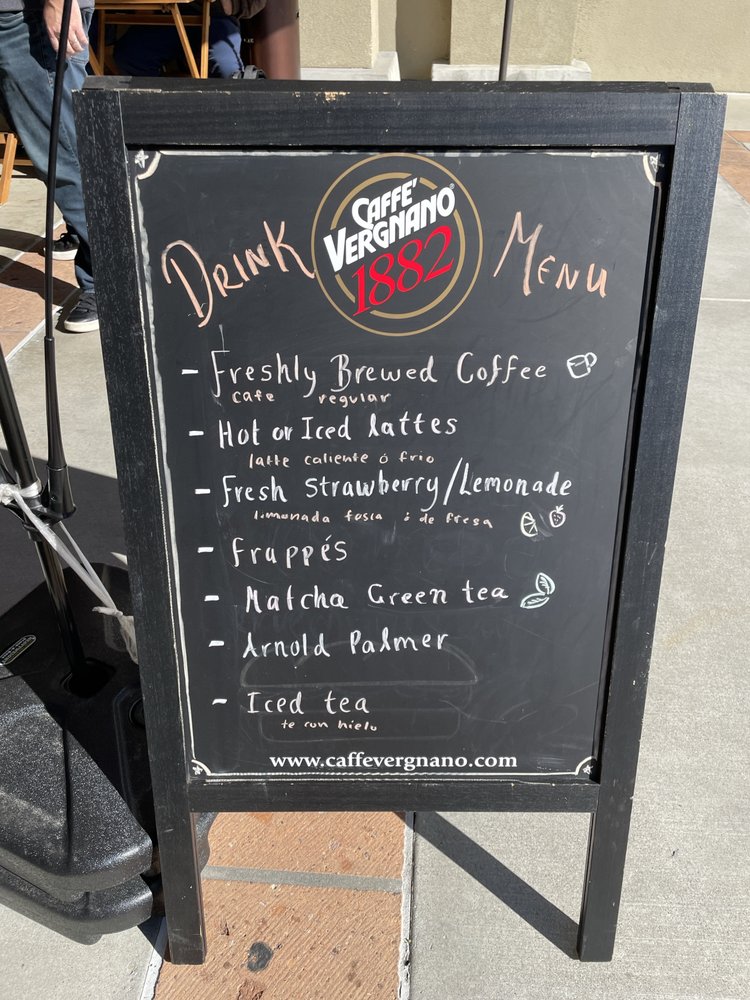 CAFFE' VERGNANO®
1882
DRINK MENU
- Freshly Brewed Coffee
cafe regular
- Hot or Iced lattes
latte caliente ó frio
- Fresh Strawberry/Lemonade
limonada ó de fresa
- Frappés
- Matcha Green tea
- Arnold Palmer
- Iced tea
te con hielo
www.caffevergnano.com